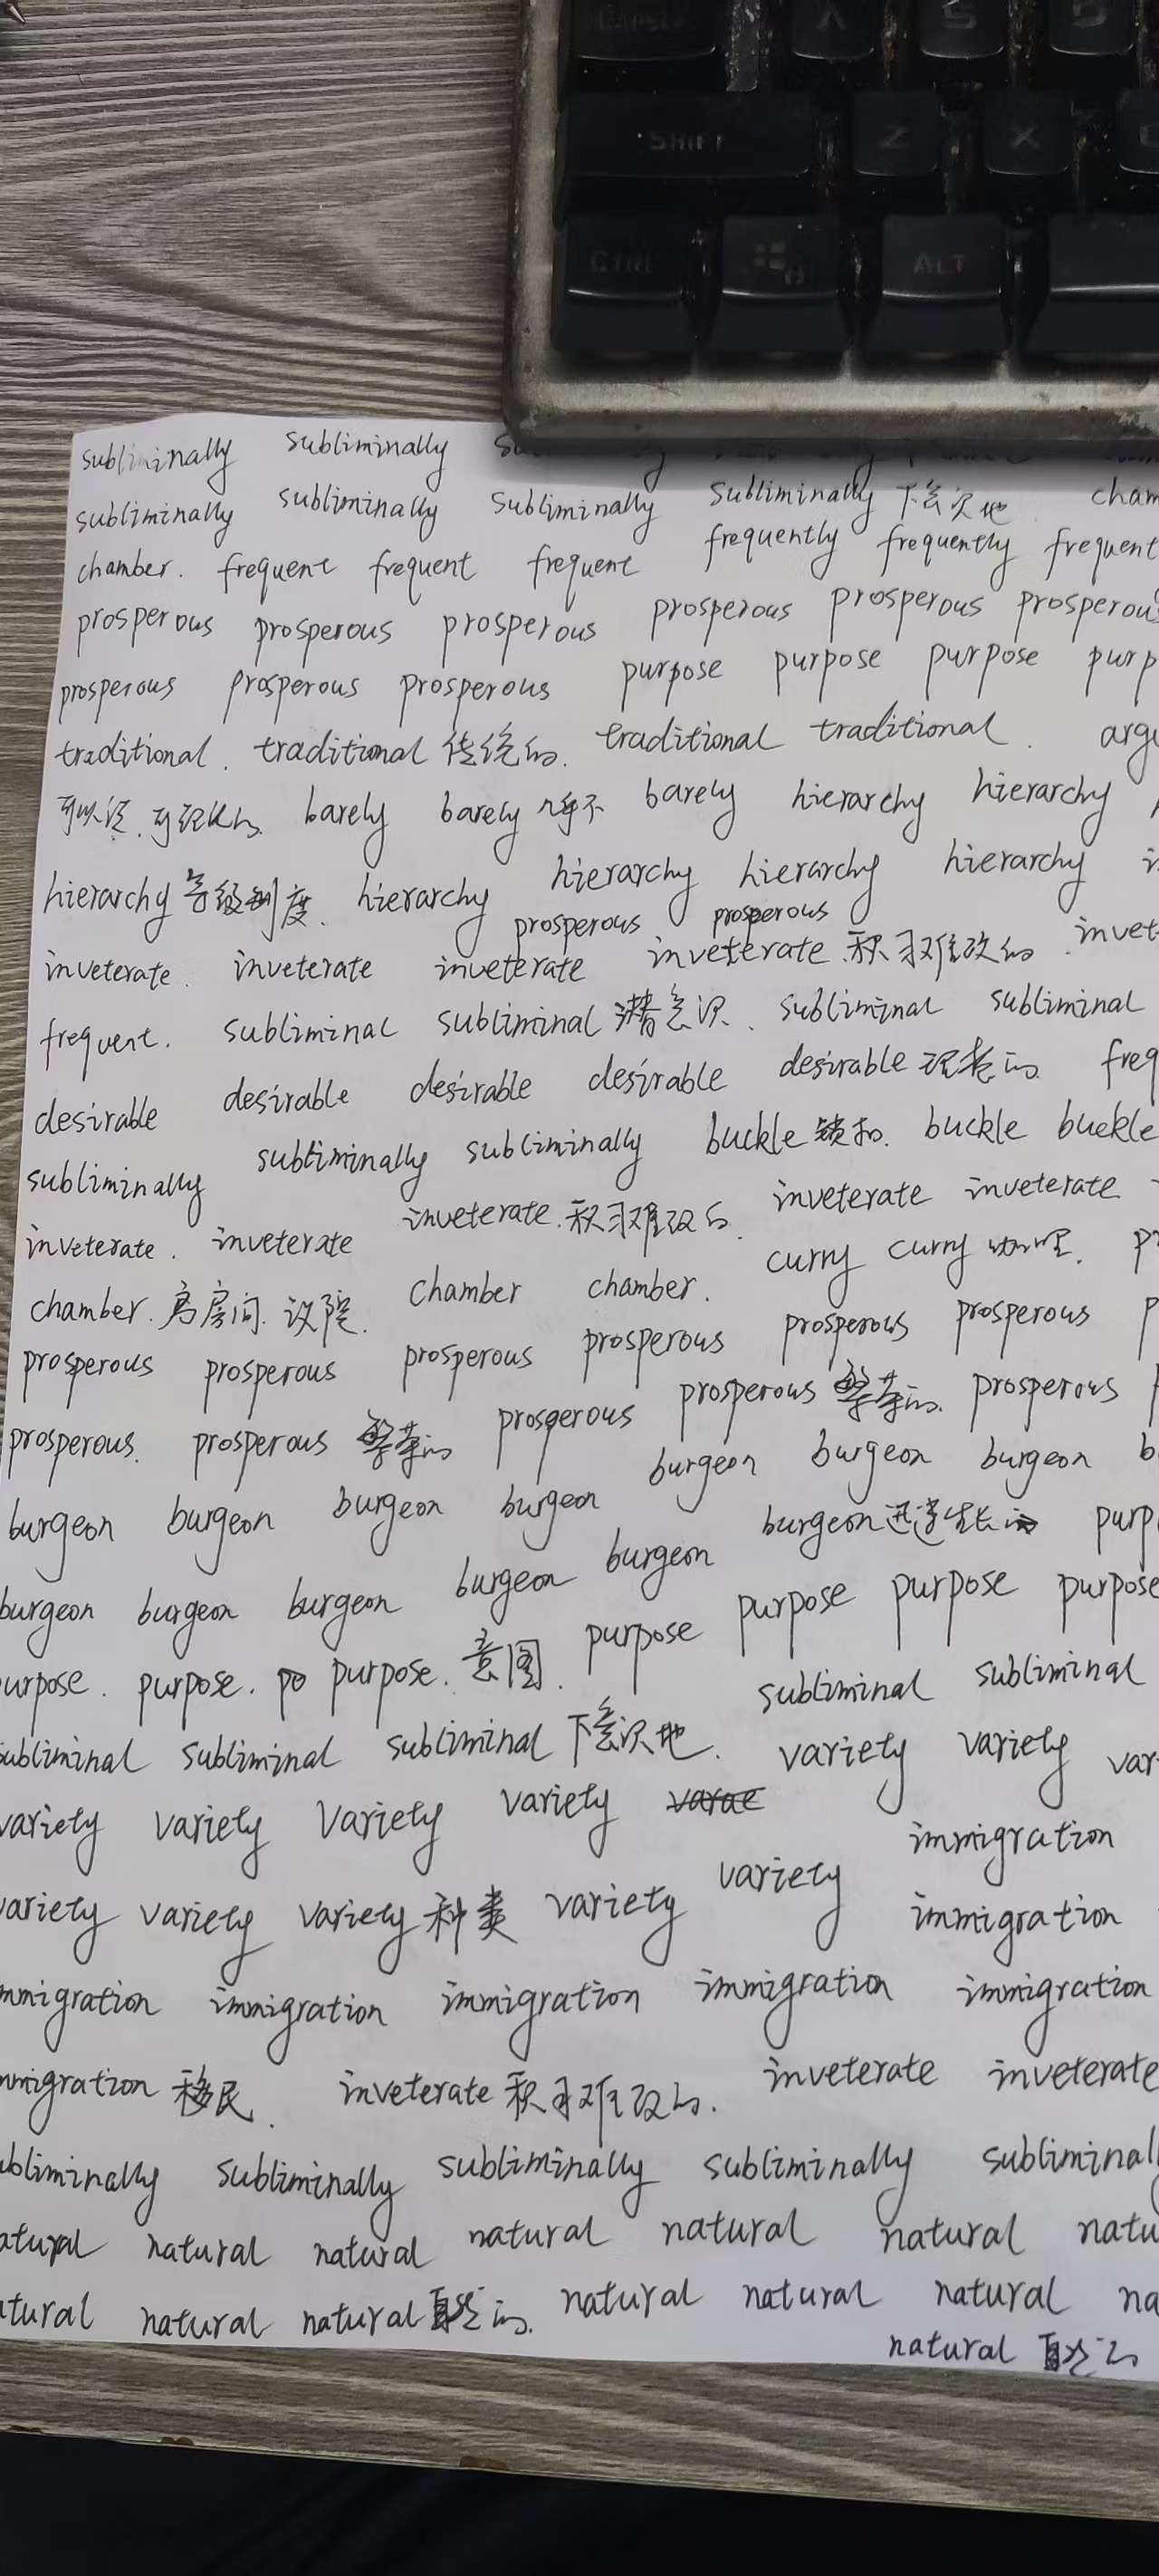 CAPSLK A S D
Shift Z X
CTRL ALT
subliminally subliminally
subliminally subliminally subliminally subliminally 下意识地 cham
chamber. frequent frequent frequent frequently frequently frequent
prosperous prosperous prosperous prosperous prosperous prosperous
prosperous prosperous prosperous purpose purpose purpose purp
traditional. traditional 传统的. traditional traditional. argu
barely barely 几乎不 barely hierarchy hierarchy
hierarchy 等级制度. hierarchy hierarchy hierarchy hierarchy
prosperous prosperous
inveterate. inveterate inveterate inveterate 积习难改的. invet
frequent. subliminal subliminal 潜意识. subliminal subliminal
desirable desirable desirable desirable desirable 理想的 freq
subliminally subliminally subliminally buckle 锁扣. buckle buckle
inveterate. inveterate inveterate. 积习难改的. inveterate inveterate
chamber. 房间. 议院. chamber chamber. curry curry 咖喱. p
prosperous prosperous prosperous prosperous prosperous prosperous p
prosperous. prosperous 繁荣的 prosperous prosperous 繁荣的. prosperous
burgeon burgeon burgeon burgeon burgeon burgeon burgeon b
burgeon burgeon burgeon burgeon burgeon burgeon 迅速生长 purp
urpose. purpose. po purpose. 意图. purpose purpose purpose purpose
ubliminal subliminal subliminal 下意识地. subliminal subliminal
variety variety variety variety varae variety variety var
variety variety variety 种类 variety variety immigration
immigration
mmigration immigration immigration immigration immigration
mmigration 移民. inveterate 积习难改的. inveterate inveterate
ubliminally subliminally subliminally subliminally subliminall
atural natural natural natural natural natural natu
atural natural natural 自然的. natural natural natural na
natural 自然的